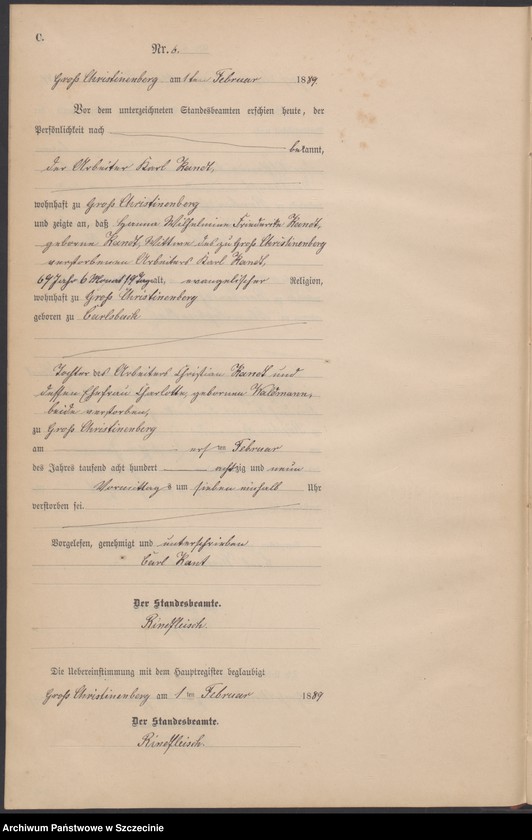 C.
Nr. 5.
Groß Christinenberg am 1ten Februar 1889.
Vor dem unterzeichneten Standesbeamten erschien heute, der
Persönlichkeit nach
bekannt,
der Arbeiter Karl Kandt,
wohnhaft zu Groß Christinenberg
und zeigte an, daß Hanna Wilhelmine Friederike Kandt,
geborene Kandt, Wittwe des zu Groß Christinenberg
verstorbenen Arbeiters Karl Kandt,
64 Jahr 6 Monat 19 Tage alt, evangelischer Religion,
wohnhaft zu Groß Christinenberg
geboren zu Carlsbach
Tochter des Arbeiters Christian Kandt und
dessen Ehefrau Charlotte, gebornen Waldmann,
beide verstorben,
zu Groß Christinenberg
am ersten Februar
des Jahres tausend acht hundert achtzig und neun
Vormittags um sieben einhalb Uhr
verstorben sei.
Vorgelesen, genehmigt und unterschrieben
Carl Kant
Der Standesbeamte.
Rindfleisch.
Die Uebereinstimmung mit dem Hauptregister beglaubigt
Groß Christinenberg am 1ten Februar 1889
Der Standesbeamte.
Rindfleisch.
Archiwum Państwowe w Szczecinie